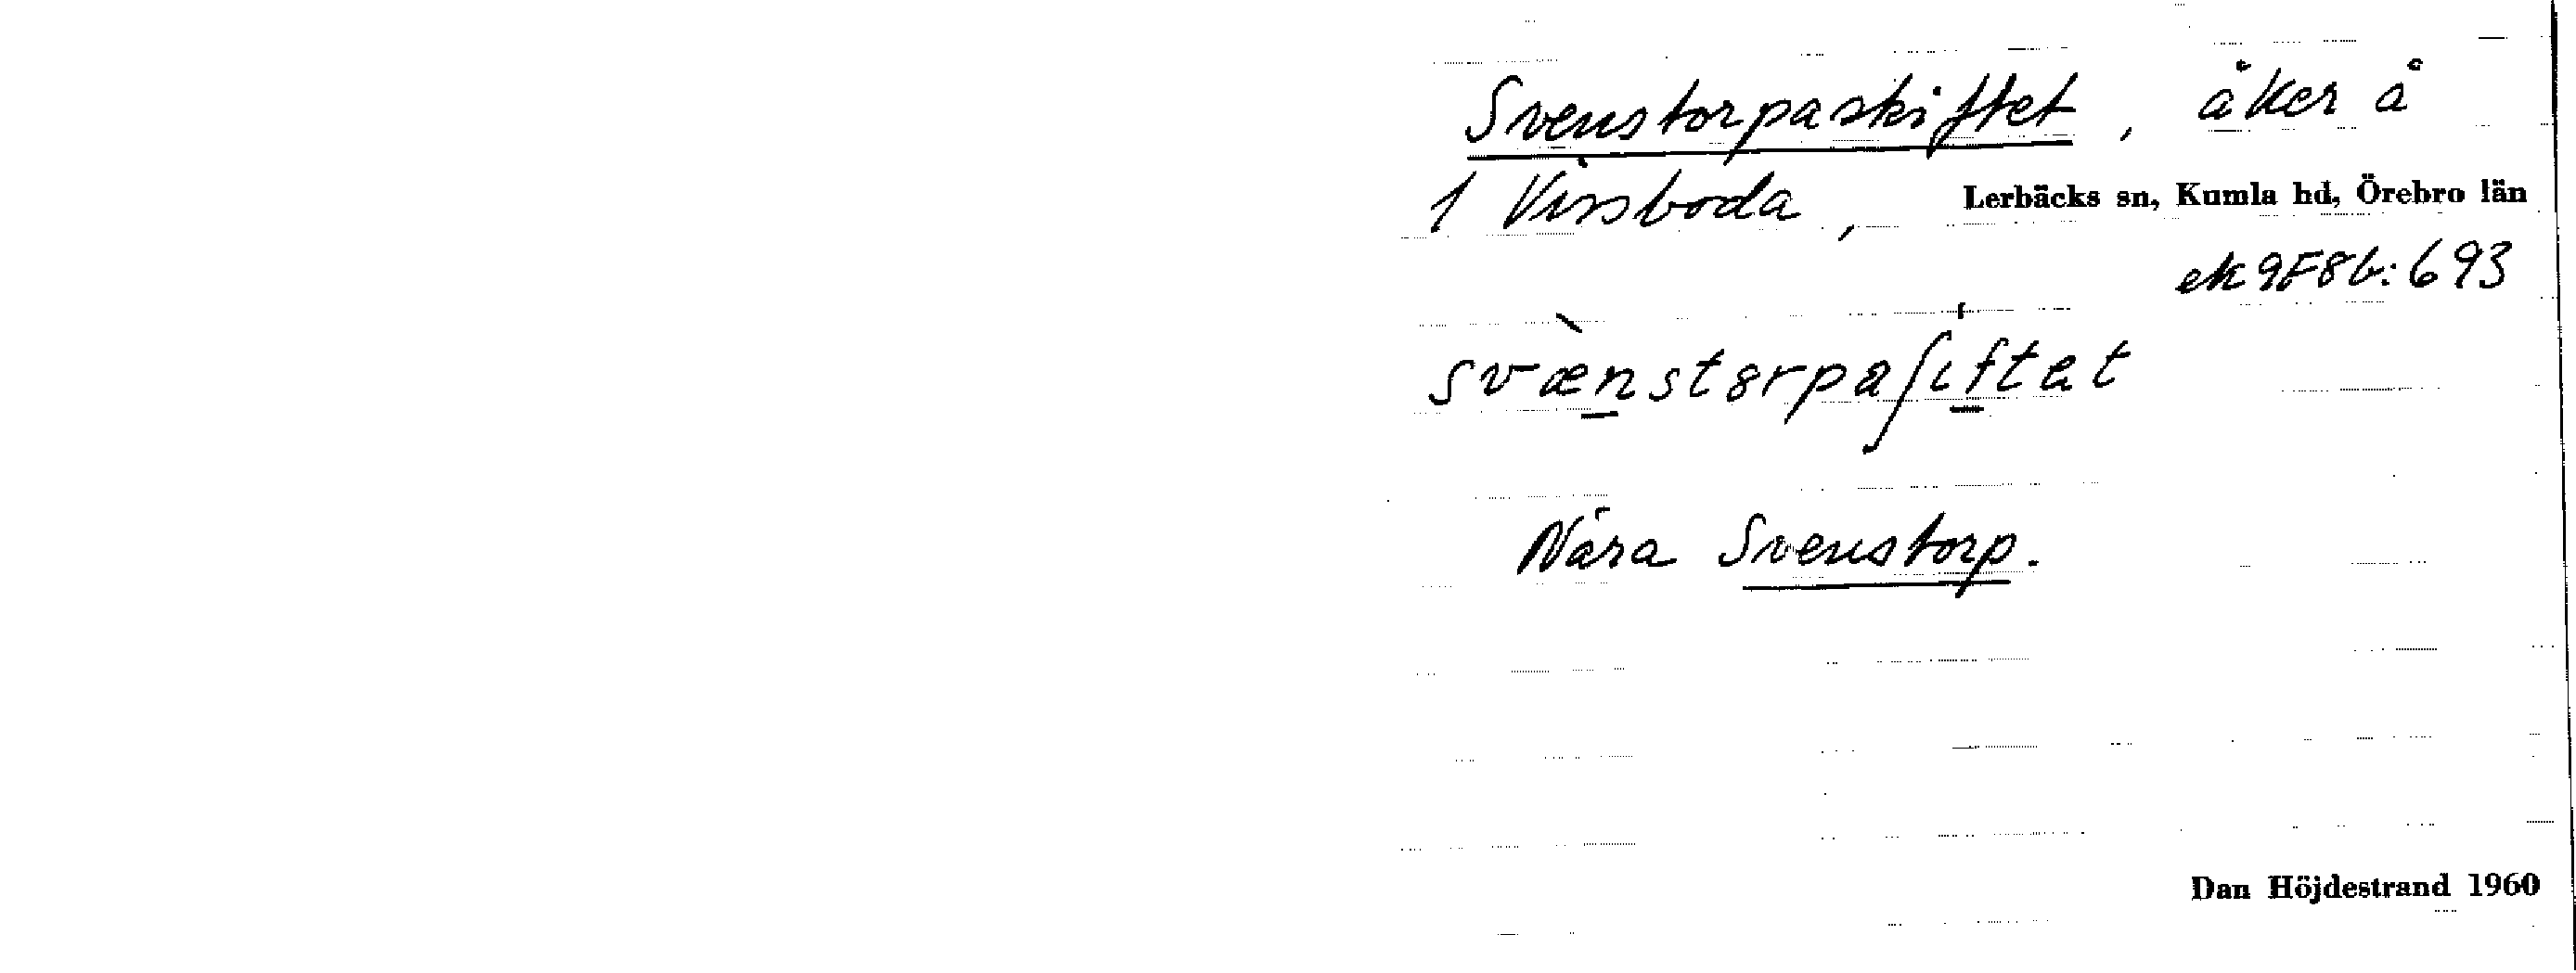 Svenstorpaskiftet, åker å
1 Vissboda, Lerbäcks sn, Kumla hd, Örebro län
ek 9F8b:693
svænstɵrpaʃiftət
Nära Svenstorp.
Dan Höjdestrand 1960